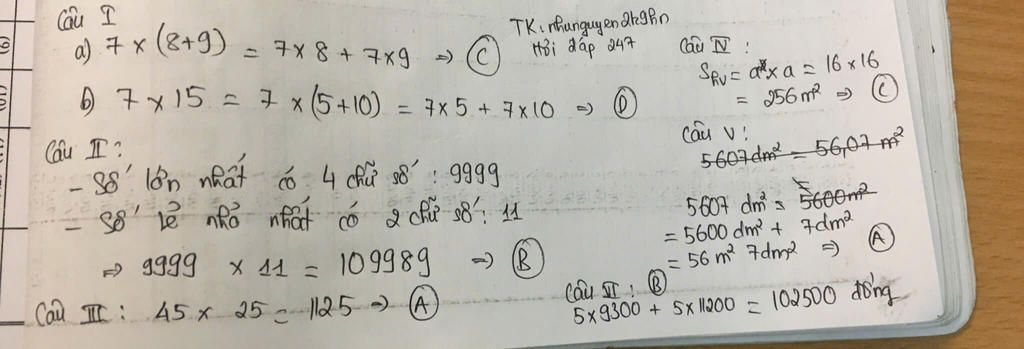 Câu I
a) 7 × (8+9) = 7 × 8 + 7×9 => C
b) 7 × 15 = 7 × (5+10) = 7×5 + 7×10 => D
Câu II:
- Số lớn nhất có 4 chữ số : 9999
- Số lẻ nhỏ nhất có 2 chữ số: 11
=> 9999 × 11 = 109989 => B
Câu III: 45 × 25 = 1125 => A
TK: nhunguyen2k9hn
Hỏi đáp 247
Câu IV:
= a × a = 16 × 16
= 256m² => C
Câu V:
5607dm² = 56,07 m²
5607 dm² = 5600m²
= 5600 dm² + 7dm²
= 56 m² 7dm² => A
Câu VI: B
5×9300 + 5×11200 = 102500 đồng